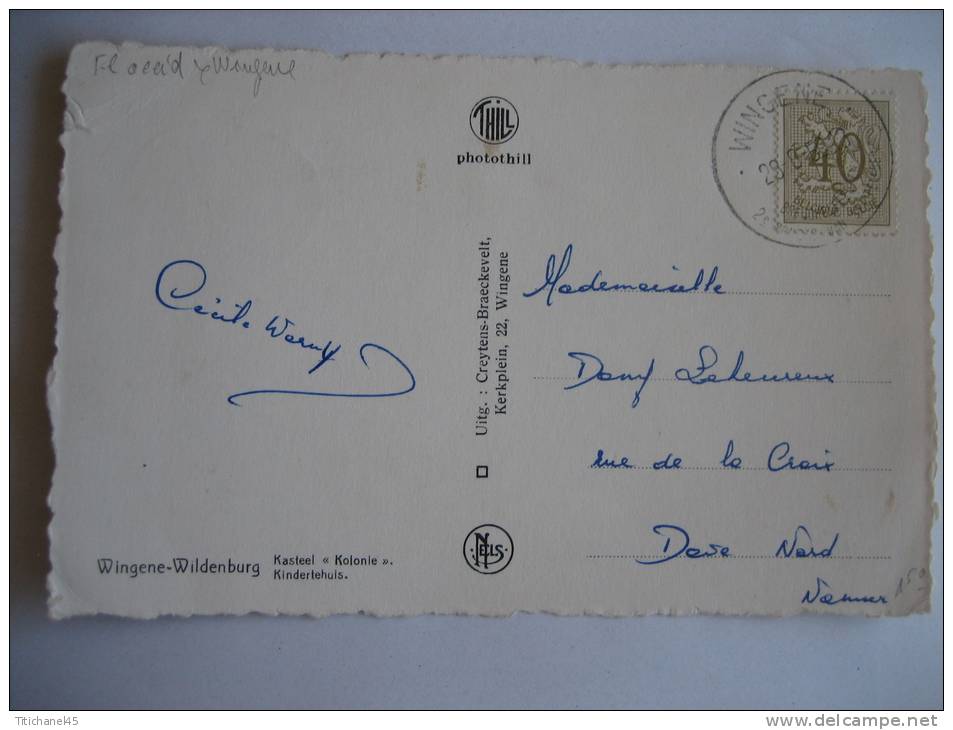 Wingene
THILL
photothill
WINGENE
40
BELGIQUE BELGIE
Cécile
Uitg. : Creytens-Braeckevelt,
Kerkplein, 22, Wingene
Mademoiselle
Dany Laheureux
rue de la Croix
Dave Nord
Namur
NELS
Wingene-Wildenburg
Kasteel « Kolonie ».
Kindertehuis.
Ttichane145
www.delcampe.net